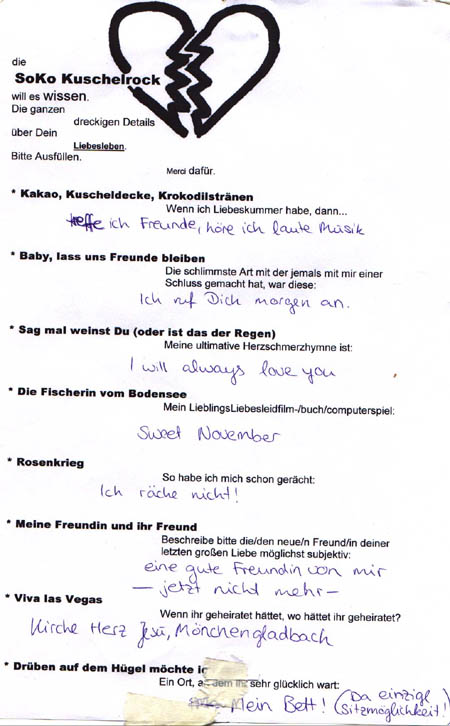 die
SoKo Kuschelrock
will es wissen.
Die ganzen
dreckigen Details
über Dein
Liebesleben.
Bitte Ausfüllen.
Merci dafür.
* Kakao, Kuscheldecke, Krokodilstränen
Wenn ich Liebeskummer habe, dann...
treffe ich Freunde, höre ich laute Musik
* Baby, lass uns Freunde bleiben
Die schlimmste Art mit der jemals mit mir einer
Schluss gemacht hat, war diese:
Ich ruf Dich morgen an.
* Sag mal weinst Du (oder ist das der Regen)
Meine ultimative Herzschmerzhymne ist:
I will always love you
* Die Fischerin vom Bodensee
Mein LieblingsLiebesleidfilm-/buch/computerspiel:
Sweet November
* Rosenkrieg
So habe ich mich schon gerächt:
Ich räche nicht!
* Meine Freundin und ihr Freund
Beschreibe bitte die/den neue/n Freund/in deiner
letzten großen Liebe möglichst subjektiv:
eine gute Freundin von mir
– jetzt nicht mehr –
* Viva las Vegas
Wenn ihr geheiratet hättet, wo hättet ihr geheiratet?
Kirche Herz Jesu, Mönchengladbach
* Drüben auf dem Hügel möchte ic
Ein Ort, an dem ihr sehr glücklich wart:
Mein Bett! (Da einzige Sitzmöglichkeit!)